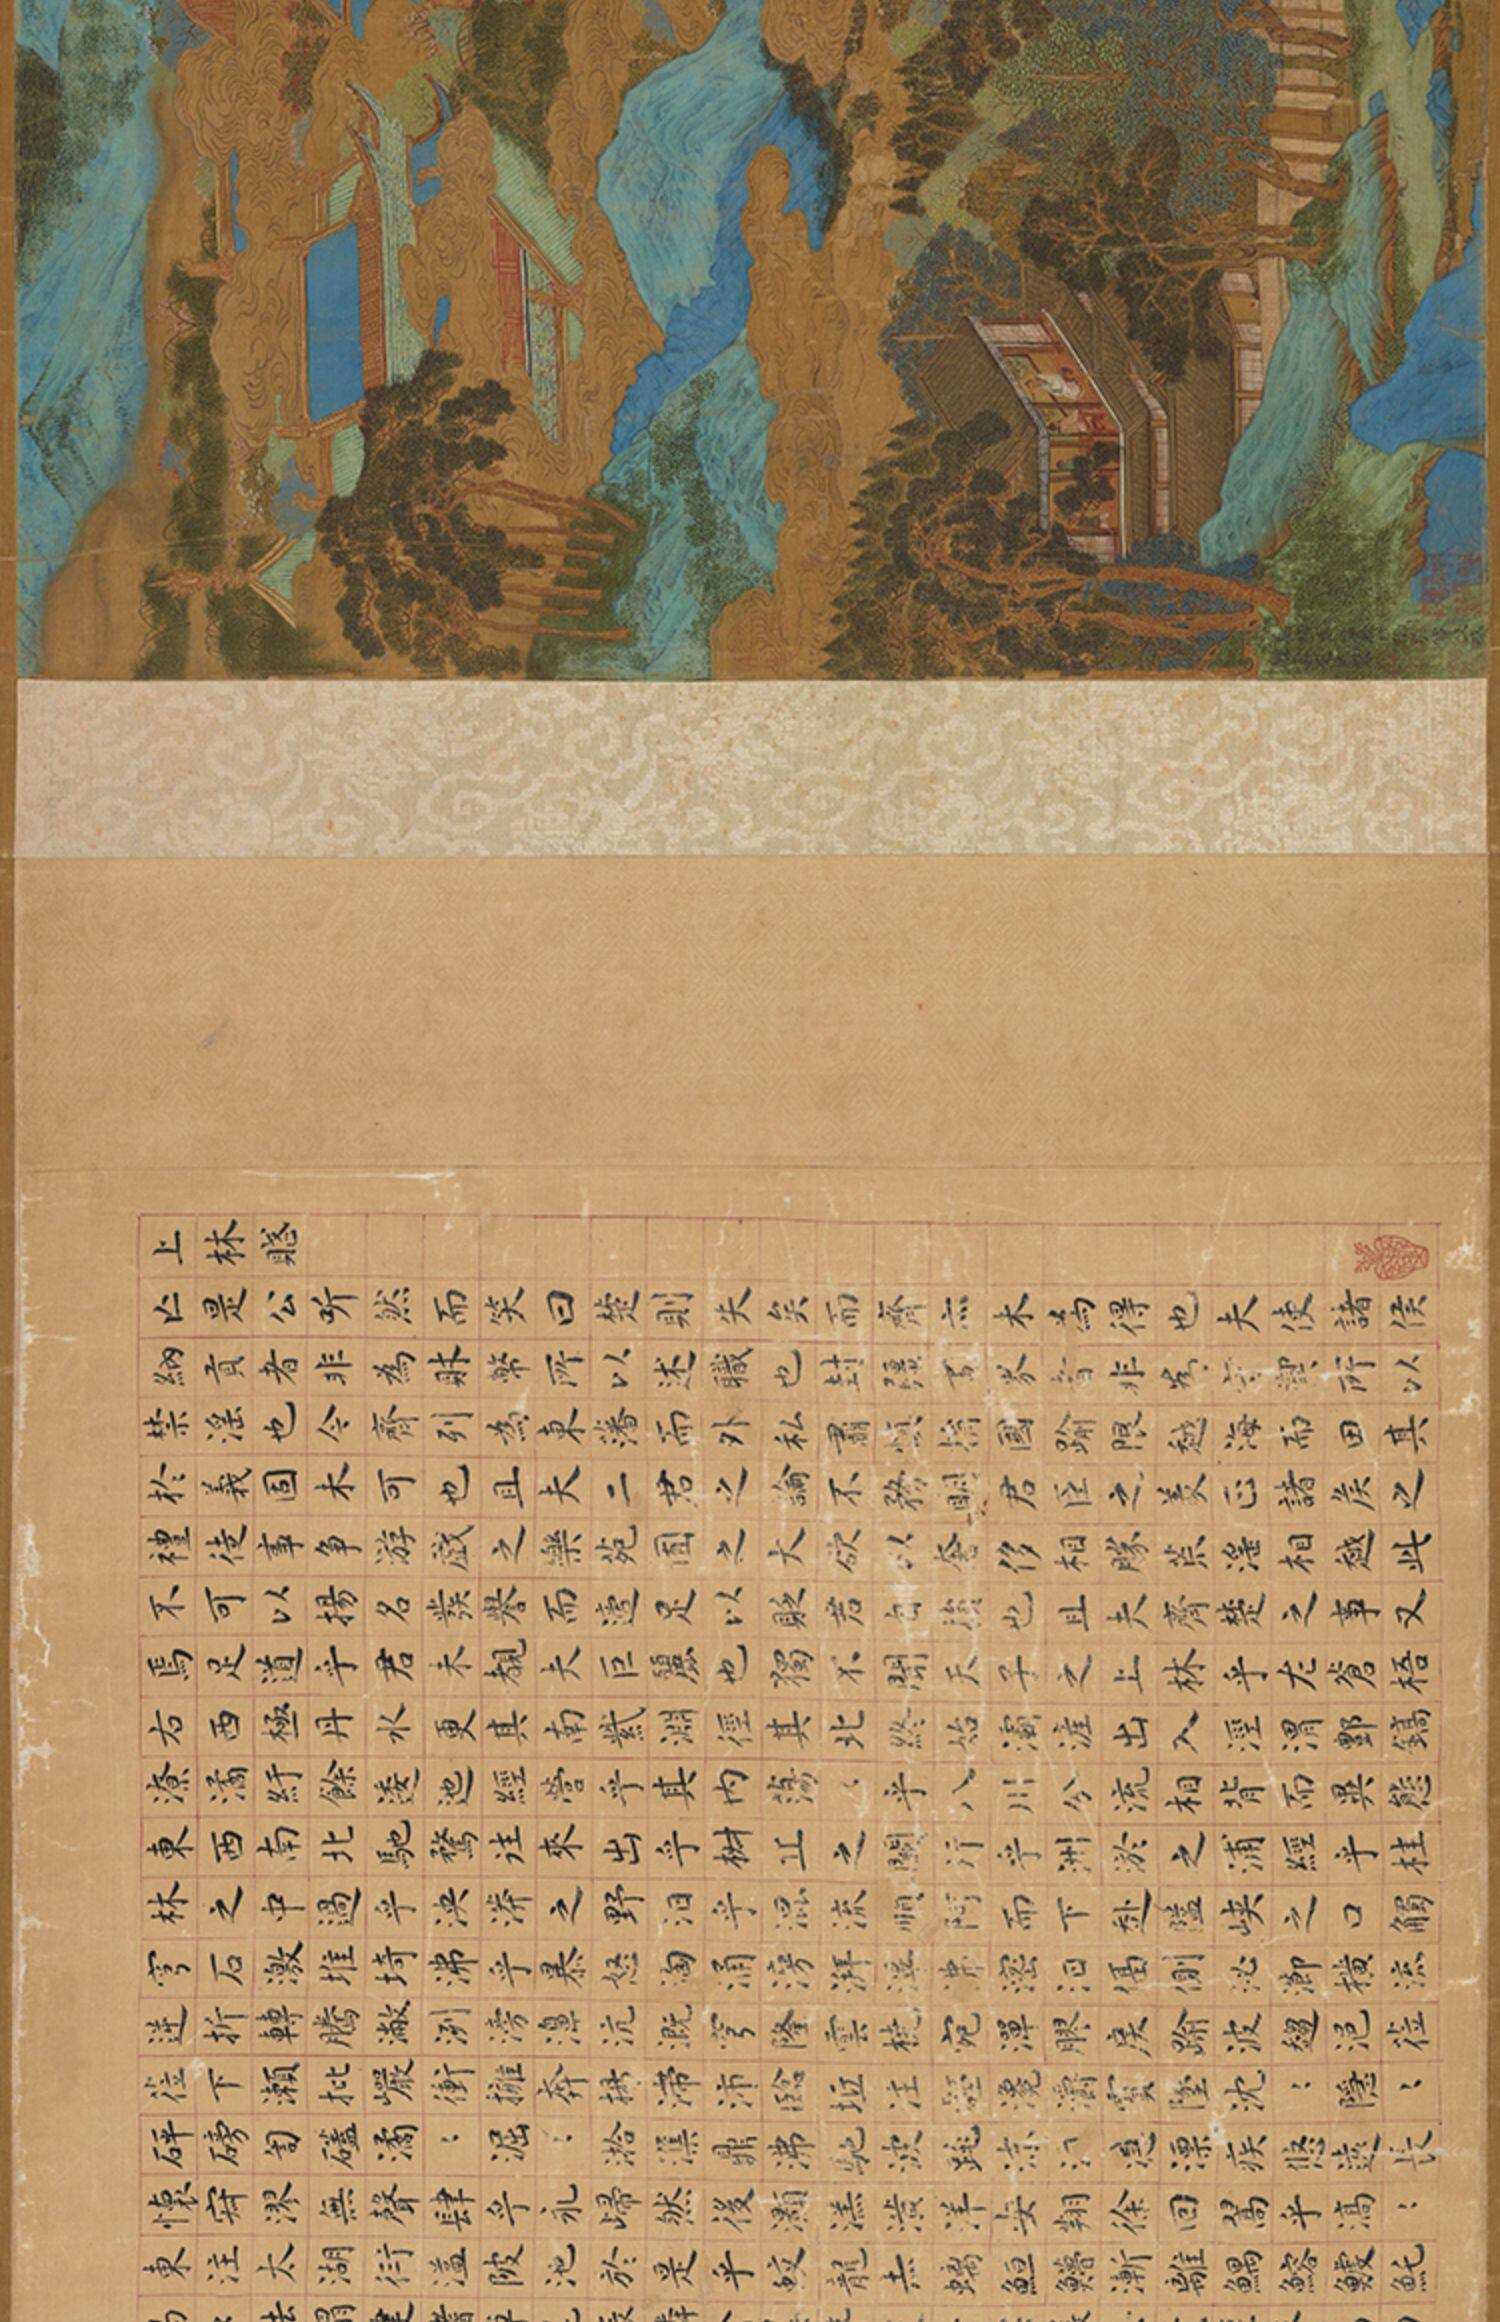 上林賦
亡是公听然而笑曰楚則失矣而齊亦未為得也夫使諸侯
納貢者非為財幣所以述職也封疆畫界者非為守禦所以
禁淫也今齊列為東藩而外私肅慎捐國踰限越海而田其
於義固未可也且夫二君之論不務明君臣之義正諸侯之
禮徒事争游戲之樂苑囿之大欲以奢侈相勝荒淫相越此
不可以揚名發譽而適足以貶君自損也且夫齊楚之事又
焉足道乎君未覩夫巨麗也獨不聞天子之上林乎左蒼梧
右西極丹水更其南紫淵徑其北終始灞滻出入涇渭酆鎬
潦潏紆餘逶迤經營乎其内蕩〻乎八川分流相背而異態
東西南北馳騖往來出乎椒丘之闕行乎洲淤之浦經乎桂
林之中過乎泱漭之野汨乎混流順阿而下赴隘峽之口觸
穹石激堆埼沸乎暴怒洶涌滂湃滭沸滵汨偪側泌瀄橫流
逆折轉騰潎洌滂濞沆溉穹隆雲橈宛潬膠戾踰波趨浥莅
莅下瀨批巖衝擁奔揚滯沛臨坻注壑瀺灂霣墜沈〻隱〻
砰磅訇磕潏〻淈〻湁潗鼎沸馳波跳沫漂疾悠遠長
懷寂漻無聲肆乎永歸然後灝溔安翔徐回翯乎滈〻
東注太湖衍溢陂池於是乎蛟龍赤螭漸離鰅鰫鰬魠